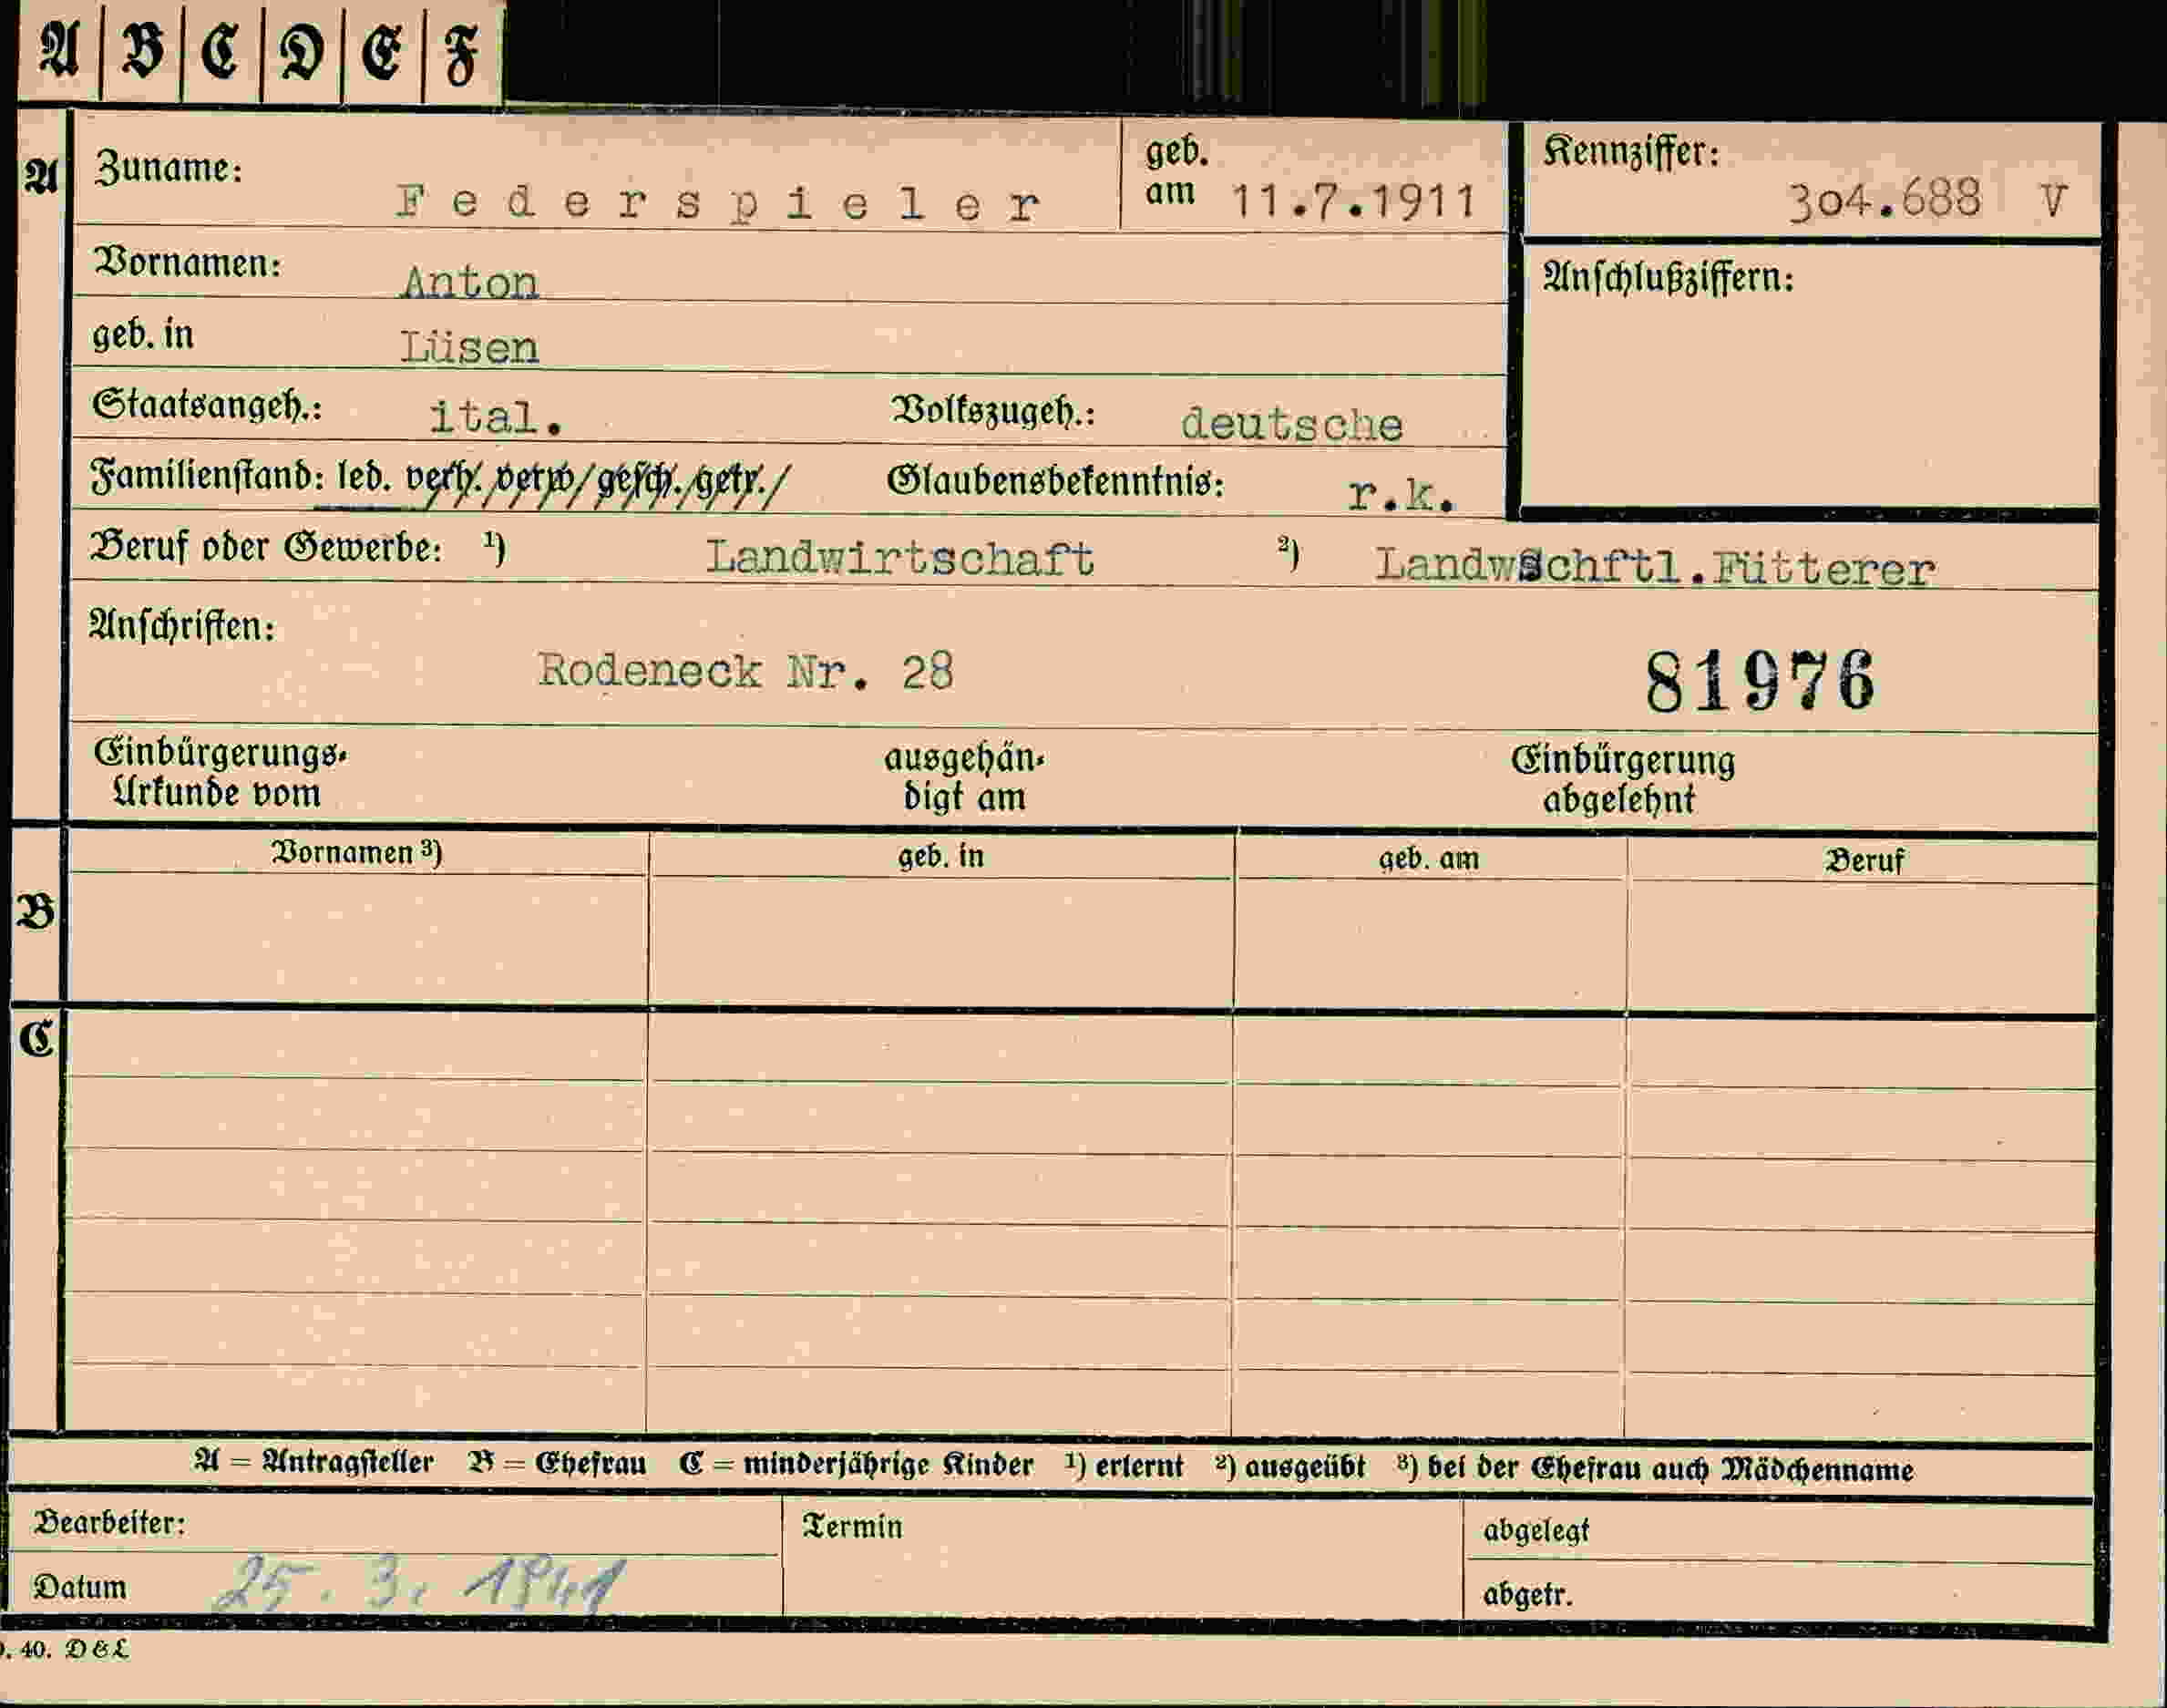 A B C D E F
A Zuname: Federspieler geb. am 11.7.1911 Kennziffer: 304.688 V
Vornamen: Anton Anschlußziffern:
geb. in Lüsen
Staatsangeh.: ital. Volkszugeh.: deutsche
Familienstand: led. verh. verw. gesch. getr. Glaubensbekenntnis: r.k.
Beruf oder Gewerbe: ¹) Landwirtschaft ²) Landwschftl.Fütterer
Anschriften:
Rodeneck Nr. 28 81976
Einbürgerungs- ausgehän- Einbürgerung
Urkunde vom digt am abgelehnt
Vornamen ³) geb. in geb. am Beruf
B
C
A = Antragsteller B = Ehefrau C = minderjährige Kinder ¹) erlernt ²) ausgeübt ³) bei der Ehefrau auch Mädchenname
Bearbeiter: Termin abgelegt
Datum 25. 3. 1941 abgetr.
. 40. D & L